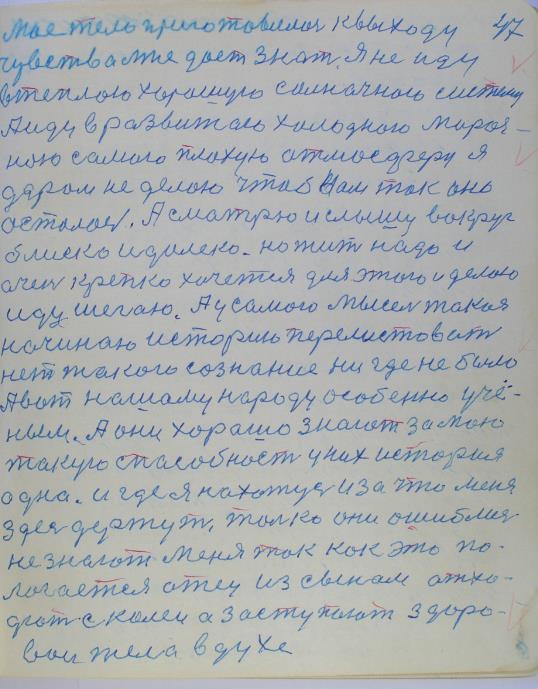 Мое тело приготовилос к выходу 47
чувства мне дает знат. Я не иду
в теплою хорошую солначною систему
А иду в развитою холодною мороч-
ною самою плохую отмосдгеру я
даром не делою чтоб Вам так онь
осталос. А сматрю и слышу вокруг
блиско и далеко. но жит надо и
очен крепко хочется для этого и делою
иду шегаю. А у самого мысел такая
начинаю историю перелистоват
нет такого сознание ни где не было
А вот нашаму народу особенно учё-
ным. А они хорашо знают за мою
такую способност у них история
одна. и где я нахожус и за что меня
здес держут, толко они ошиблис
не знают меня так как это по-
логается отец из сынам отхо-
дят с колеи а заступают здоро-
вои тела в духе